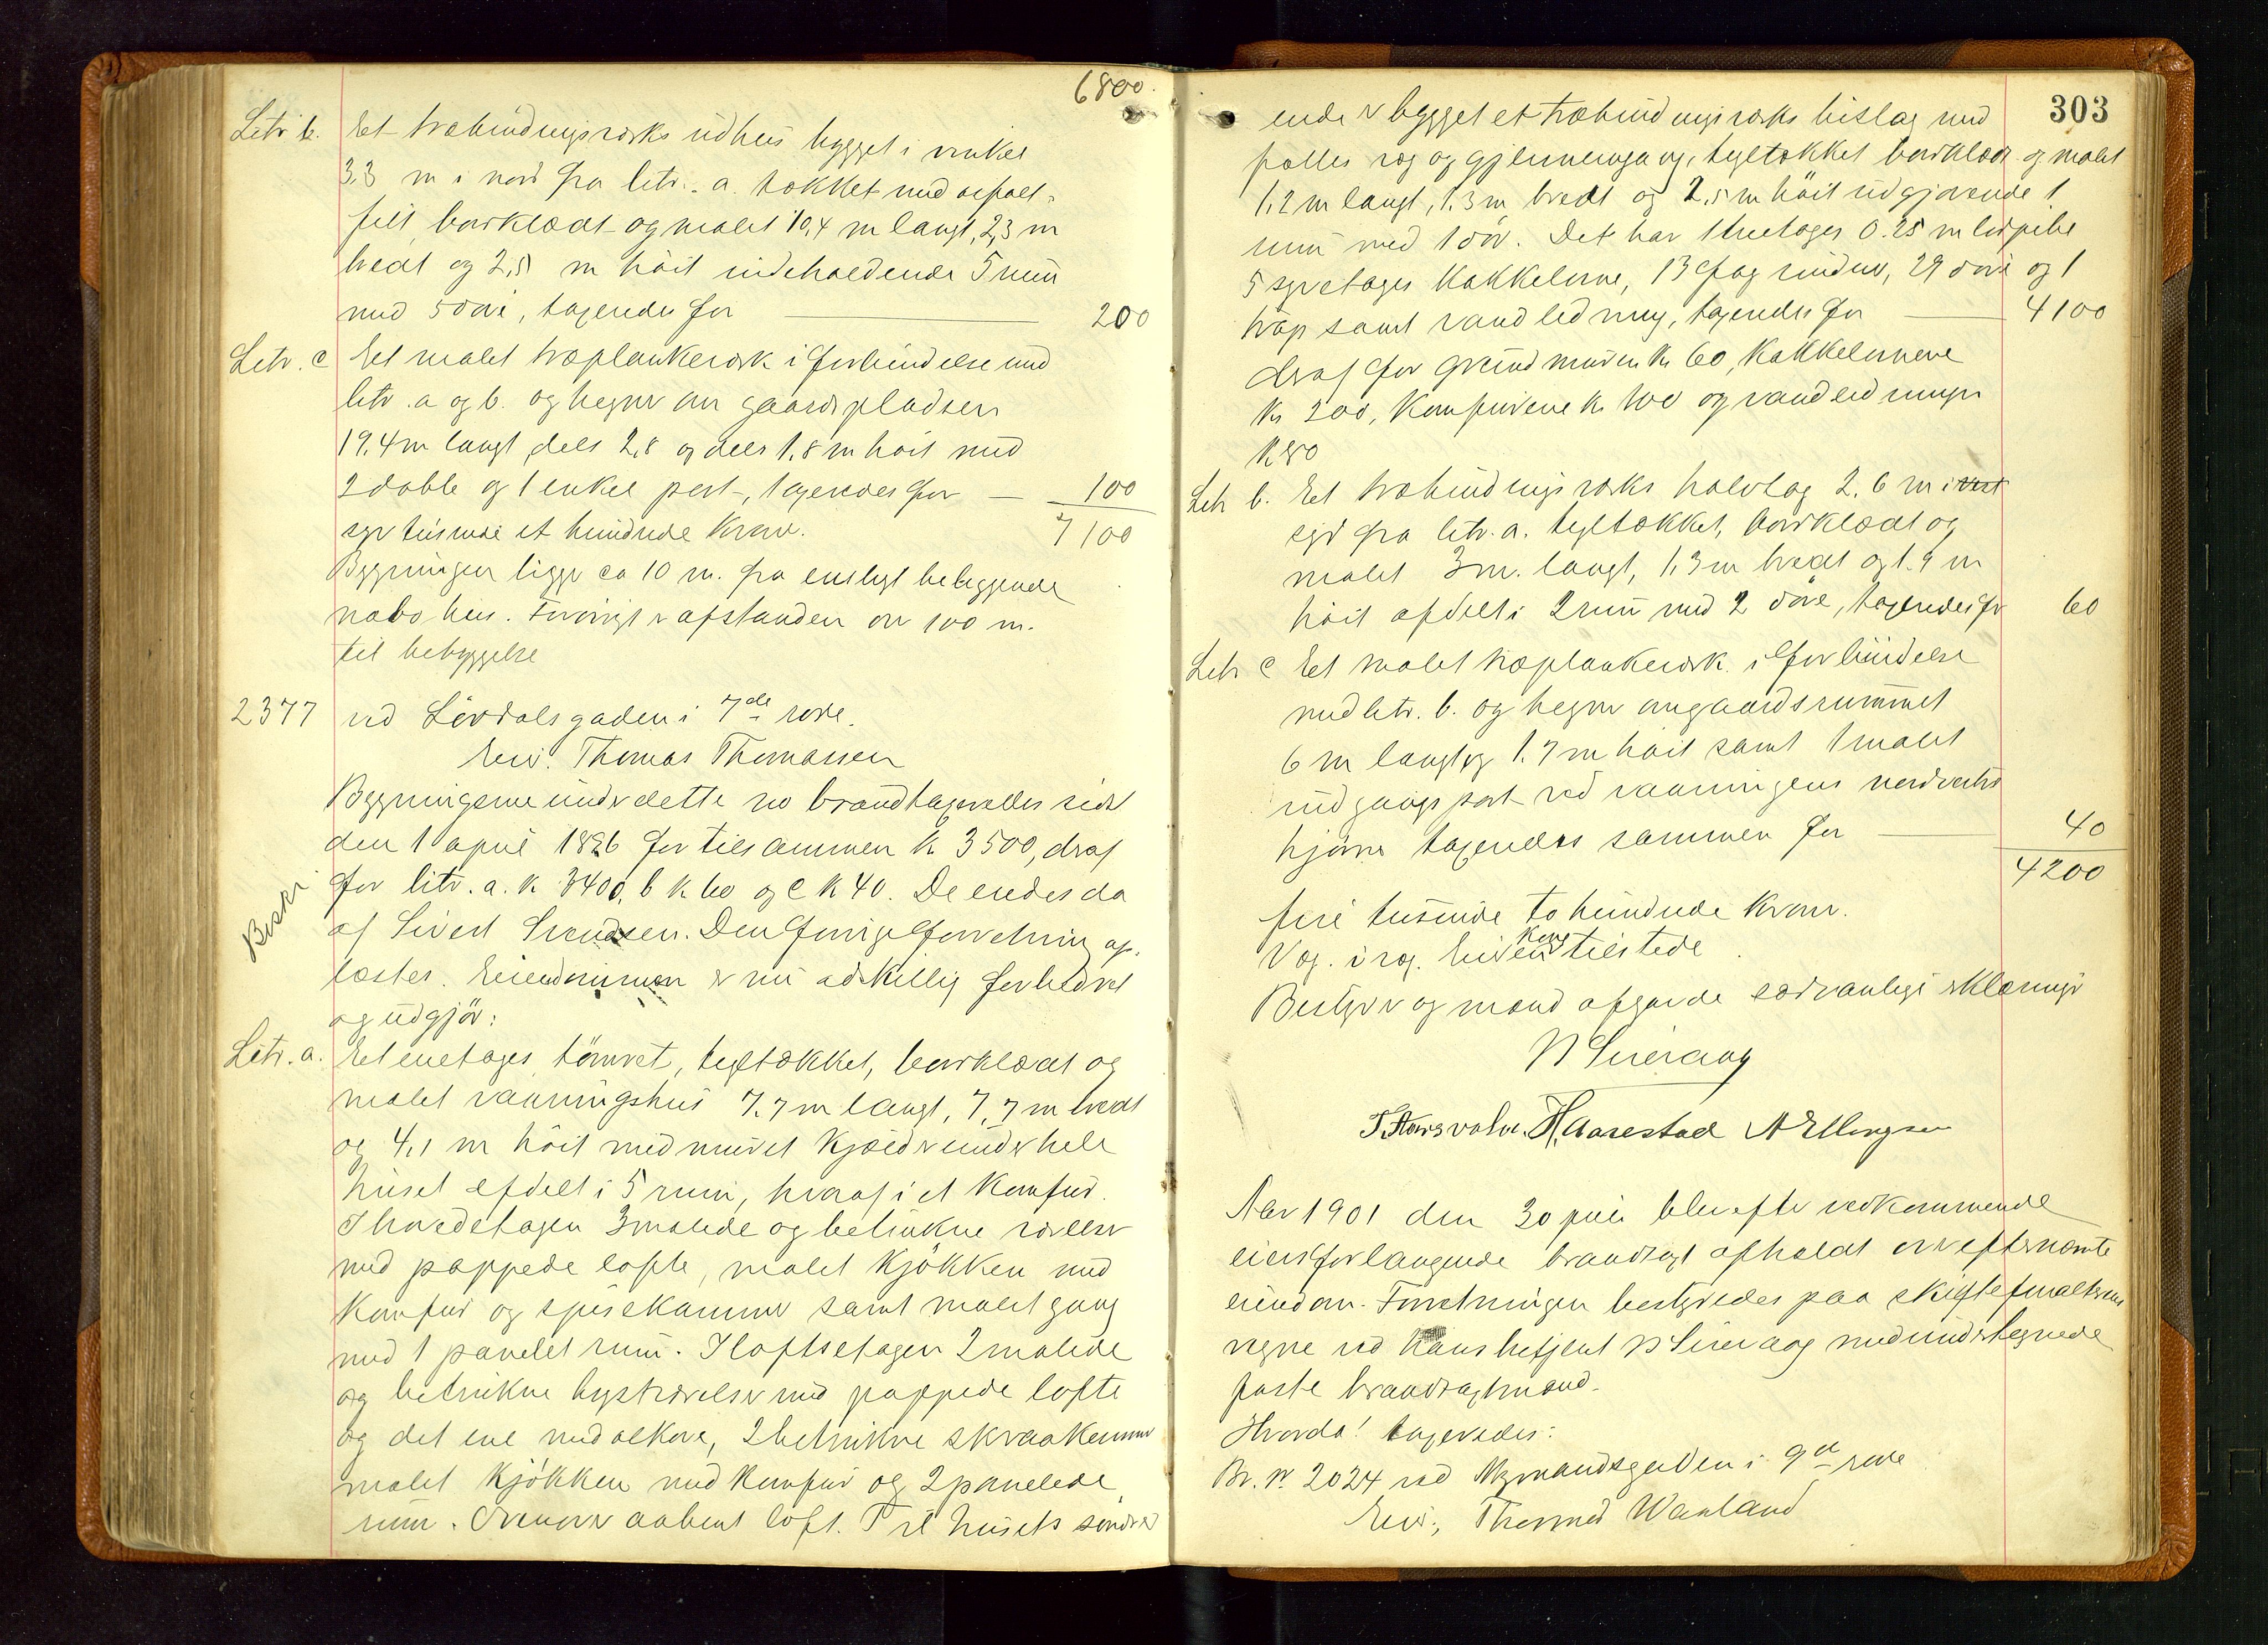 6800.
Litr b. Et træbindingsværks udhus bygget i vinkel
3.3 m i nord fra litr. a. tækket med asfalt-
filt, bordklædt og malet 10,4 m langt, 2,3 m
bredt og 2,5 m höit indeholdende 5 rum
med 5 döre, taxeredes for 200
Litr. c Et malet træplankeværk i forbindelse med
litr. a og b. og hegner om gaardspladsen
19.4 m langt, dels 2,8 og dels 1,8 m höit med
2 doble og 1 enkel port, taxeredes for — 100
syv tusinde et hundrede Kroner. 7100
Bygningen ligger ca 10 m. fra ensligt beliggende
nabohus. Forövrigt er afstanden over 100 m.
til bebyggelse
2377 ved Lövdalsgaden i 7de rode.
Eier: Thomas Thomassen
Bygningerne under dette no brandtaxeredes sidst
den 1 april 1896 for tilsammen k 3500, draf
for litr. a. k 3400, b k 60 og c k 40. De eiedes da
af Sivert Svendsen. Den forrige forretning op-
læstes. Eiendommen er nu adskillig forbedret
og udgjör:
Litr. a. Et enetages, tömret, tegltækket, bordklædt og
malet vaaningshus 7.7 m langt, 7,7 m bredt
og 4,1 m höit med muret Kjælder under hele
huset afdelt i 5 rum, hvoraf i et Komfur.
I hovedetagen 3 malede og betrukne værelser
med pappede lofte, malet Kjökken med
Komfur og spisekammer samt malet gang
med 1 panelet rum. I loftsetagen 2 malede
og betrukne kvistværelser med pappede lofte
og det ene med alkove, 2 betrukne skraakammer
malet Kjökken med Komfur og 2 panelede
rum. Ovenover aabent loft. Til husets söndre
303
ende er bygget et træbindingsværks bislag med
fælles væg og gjennemgang, tegltækket bordklædt og malet
1,2 m langt, 1.3 m bredt og 2,5 m höit udgjörende 1
rum med 1 dör. Det har 1 treetages 0.25 m lodpibe
5 syvetages Kakkelovne, 13 fag vinduer, 29 döre og 1
trap samt vandledning, taxeredes for — 4100
draf for grundmuren k 60, Kakkelovnene
k 200, Komfurene k 100 og vandledningen
k 80
Litr b. Et træbindingsværks halvtag 2.6 m i vest
syd fra litr. a. tegltækket, bordklædt og
malet 3 m. langt, 1,3 m bredt og 1.9 m
höit afdelt i 2 rum med 2 döre, taxeredes for 60
Litr c Et malet træplankeværk i forbindelse
med litr. b. og hegner om gaardsrummet
6 m langt og 1.7 m höit samt 1 malet
indgangsport ved vaaningens nordvestre
hjörne taxeredes sammen for — 40
4200
fire tusinde to hundrede Kroner.
Vog. i væg. Eierens Kone tilstede.
Bestyrer og mænd afgavde sædvanlige erklæringer
N Sireraag
T. Horsvolve. H. Aarestad A Ellingsen
Aar 1901 den 30 juli blev efter vedkommende
eiers forlangende brandtaxt afholdt over efternævnte
eiendom. Forretningen bestyredes paa skifteforvalterens
vegne ved Kontorbetjent N Sireraag med undertegnede
faste brandtaxtmænd.
Hvorda! taxeredes:
Br. No 2024 ved Nymandsgaden i 9de rode
Eier: Thormod Waaland
Beskr.